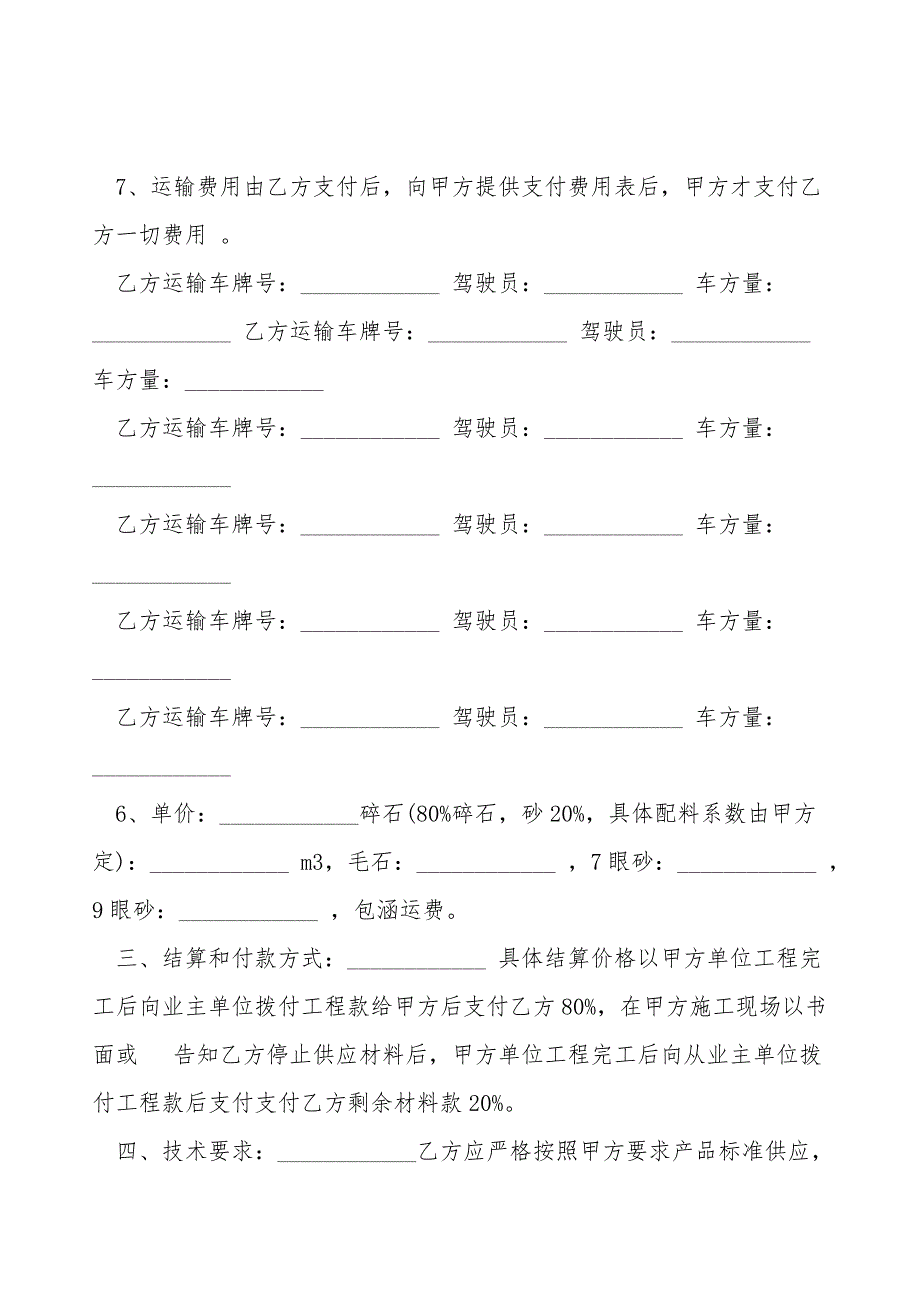 7、运输费用由乙方支付后，向甲方提供支付费用表后，甲方才支付乙
方一切费用 。
乙方运输车牌号：____________ 驾驶员：____________ 车方量：
____________ 乙方运输车牌号：____________ 驾驶员：____________
车方量：____________
乙方运输车牌号：____________ 驾驶员：____________ 车方量：
____________
乙方运输车牌号：____________ 驾驶员：____________ 车方量：
____________
乙方运输车牌号：____________ 驾驶员：____________ 车方量：
____________
乙方运输车牌号：____________ 驾驶员：____________ 车方量：
____________
6、单价：____________碎石(80%碎石，砂20%，具体配料系数由甲方
定)：____________ m3，毛石：____________ ，7眼砂：____________ ，
9眼砂：____________ ，包涵运费。
三、结算和付款方式：____________ 具体结算价格以甲方单位工程完
工后向业主单位拨付工程款给甲方后支付乙方80%，在甲方施工现场以书
面或 告知乙方停止供应材料后，甲方单位工程完工后向从业主单位拨
付工程款后支付支付乙方剩余材料款20%。
四、技术要求：____________乙方应严格按照甲方要求产品标准供应，